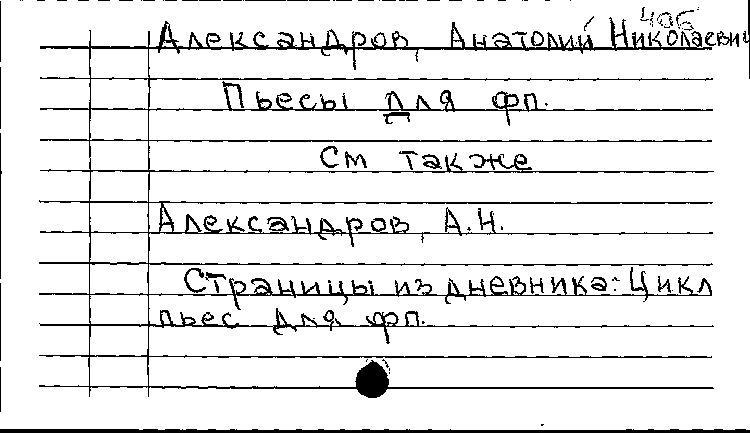 406
Александров, Анатолий Николаевич
Пьесы для фп.
См также
Александров, А.Н.
Страницы из дневника: Цикл
пьес для фп.